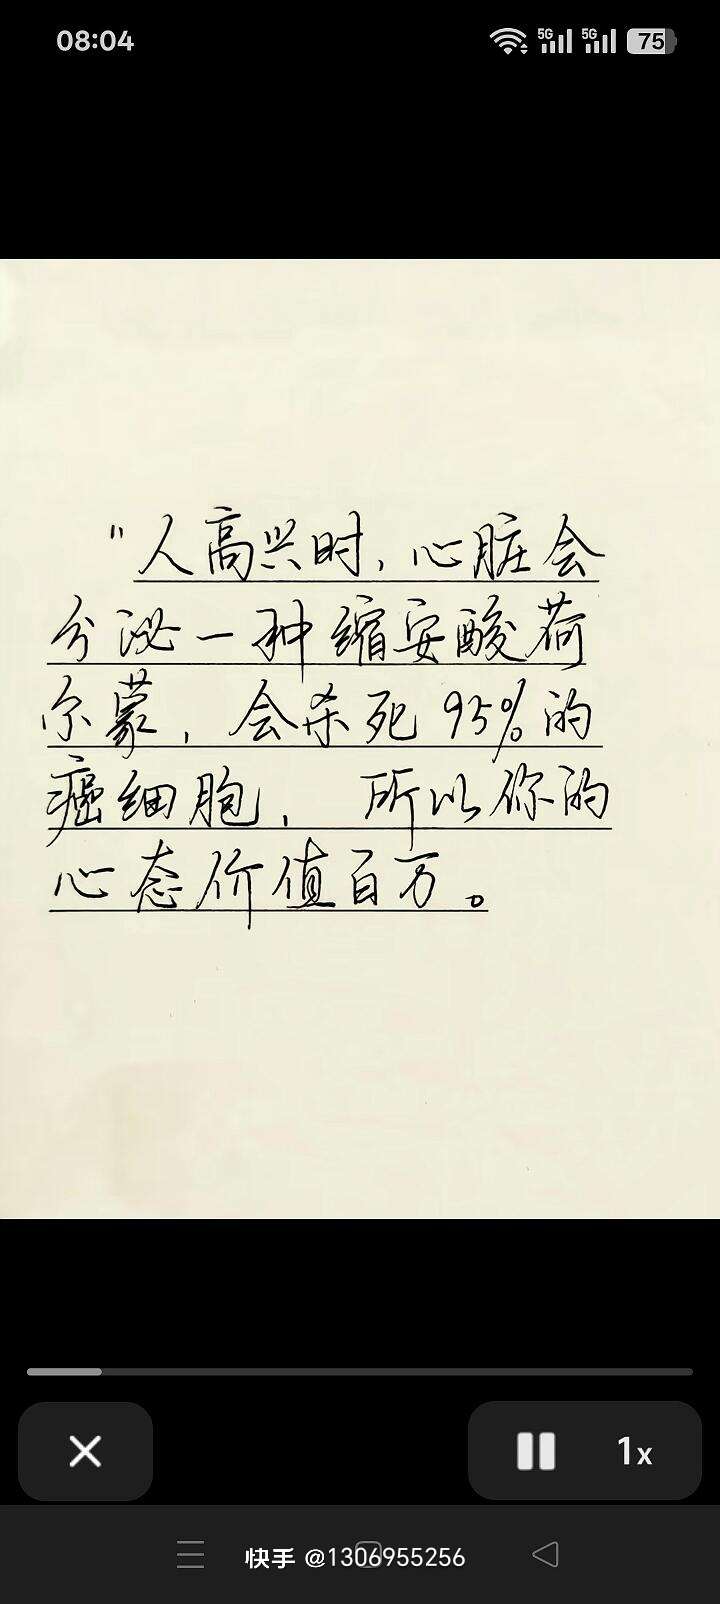 08:04
5G 5G 75
"人高兴时，心脏会
分泌一种缩安酸荷
尔蒙，会杀死95%的
癌细胞，所以你的
心态价值百万。
1x
快手 @1306955256